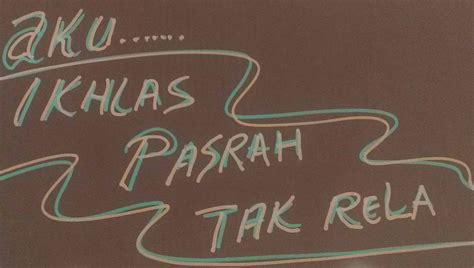 aKU.......
IKHLAS
PASRAH
TAK RELA